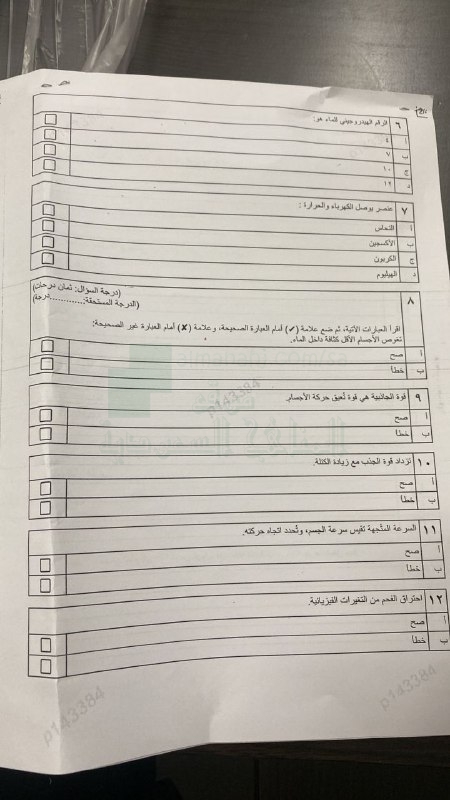 ٦ الرقم الهيدروجيني للماء هو:
أ ٤
ب ٧
ج ١٠
د ١٢
٧ عنصر يوصل الكهرباء والحرارة :
أ النحاس
ب الأكسجين
ج الكربون
د الهيليوم
٨ (درجة السؤال: ثمان درجات)
(الدرجة المستحقة:............درجة)
اقرأ العبارات الآتية، ثم ضع علامة (✓) أمام العبارة الصحيحة، وعلامة (✗) أمام العبارة غير الصحيحة:
تغوص الأجسام الأقل كثافة داخل الماء.
أ صح
ب خطأ
٩ قوة الجاذبية هي قوة تُعيق حركة الأجسام.
أ صح
ب خطأ
١٠ تزداد قوة الجذب مع زيادة الكتلة.
أ صح
ب خطأ
١١ السرعة المتجهة تقيس سرعة الجسم، وتُحدد اتجاه حركته.
أ صح
ب خطأ
١٢ احتراق الفحم من التغيرات الفيزيائية.
أ صح
ب خطأ
p143384
p143384
p143384